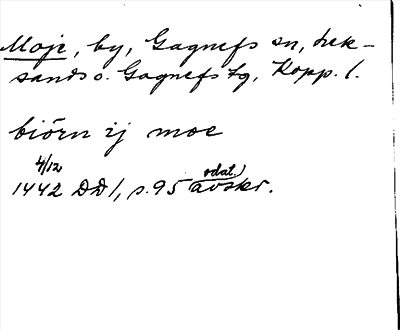 Moje, by, Gagnefs sn, Lek-
sands o. Gagnefs tg, Kopp. l.
biörn ij moe
4/12
1442 DD 1, s. 95 odat.) avskr.